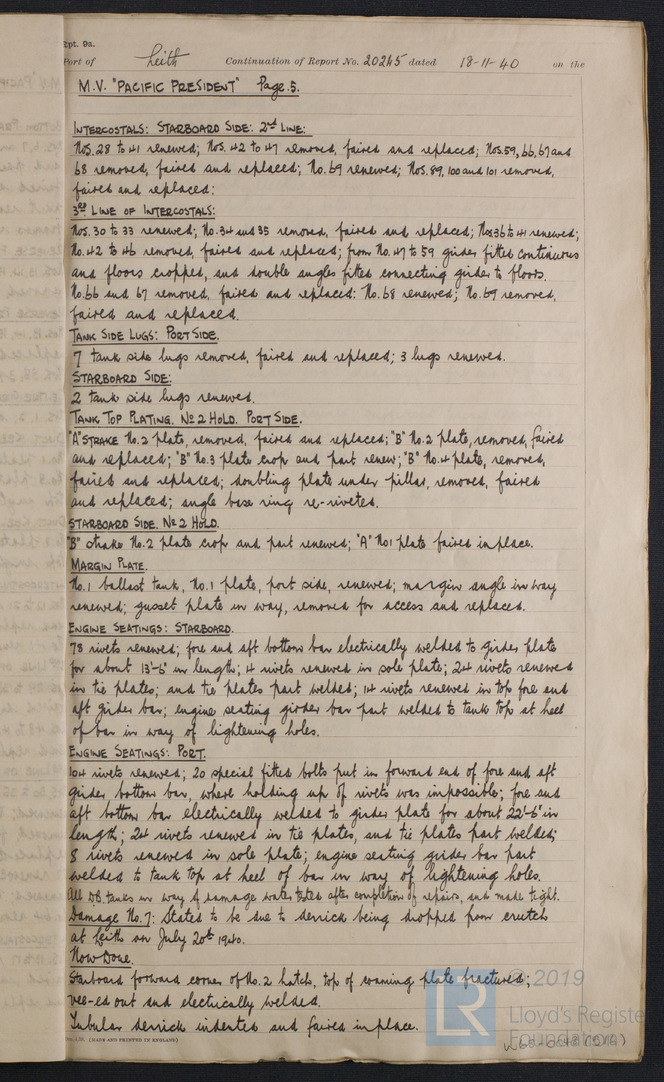 Rpt. 9a.
Port of Leith Continuation of Report No. 20245 dated 18-11-40 on the
M.V. "PACIFIC PRESIDENT" Page.5.
INTERCOSTALS: STARBOARD SIDE: 2nd LINE:
Nos. 28 to 41 renewed; Nos. 42 to 47 removed, faired and replaced; Nos. 59, 66, 67 and
68 removed, faired and replaced; No. 69 renewed; Nos. 89, 100 and 101 removed,
faired and replaced:
3rd LINE OF INTERCOSTALS:
Nos. 30 to 33 renewed; No. 34 and 35 removed, faired and replaced; Nos 36 to 41 renewed;
No. 42 to 46 removed, faired and replaced; from No. 47 to 59 girder fitted continuous
and floors cropped, and double angles fitted connecting girder to floors.
No. 66 and 67 removed, faired and replaced: No. 68 renewed; No. 69 removed,
faired and replaced.
TANK SIDE LUGS: PORT SIDE.
7 tank side lugs removed, faired and replaced; 3 lugs renewed.
STARBOARD SIDE:
2 tank side lugs renewed.
TANK TOP PLATING. No 2 HOLD. PORT SIDE.
"A" STRAKE No. 2 plate, removed, faired and replaced; "B" No. 2 plate, removed, faired
and replaced; "B" No. 3 plate crop and part renew; "B" No. 4 plate, removed,
faired and replaced; doubling plate under pillar, removed, faired
and replaced; angle base ring re-riveted.
STARBOARD SIDE. No 2 HOLD.
"B" strake No. 2 plate crop and part renewed; "A" No1 plate faired in place.
MARGIN PLATE.
No. 1 ballast tank, No. 1 plate, port side, renewed; margin angle in way
renewed; gusset plate in way, removed for access and replaced.
ENGINE SEATINGS: STARBOARD.
78 rivets renewed; fore and aft bottom bar electrically welded to girder plate
for about 13'-6" in length; 4 rivets renewed in sole plate; 24 rivets renewed
in tie plates; and tie plates part welded; 14 rivets renewed in top fore and
aft girder bar; engine seating girder bar part welded to tank top at heel
of bar in way of lightening holes.
ENGINE SEATINGS: PORT.
104 rivets renewed; 20 special fitted bolts put in forward end of fore and aft
girder bottom bar, where holding up of rivets was impossible; fore and
aft bottom bar electrically welded to girder plate for about 22'-6" in
length; 24 rivets renewed in tie plates, and tie plates part welded;
8 rivets renewed in sole plate; engine seating girder bar part
welded to tank top at heel of bar in way of lightening holes.
All D.B. tanks in way of damage water tested after completion of repairs, and made tight.
Damage No. 7: Stated to be due to derrick being dropped from crutch
at Leith on July 20th 1940.
Now Done.
Starboard forward corner of No. 2 hatch, top of coaming plate fractured;
vee-ed out and electrically welded.
Tubular derrick indented and faired in place.
(MADE AND PRINTED IN ENGLAND)
© 2019
LR
Lloyd's Register
Foundation